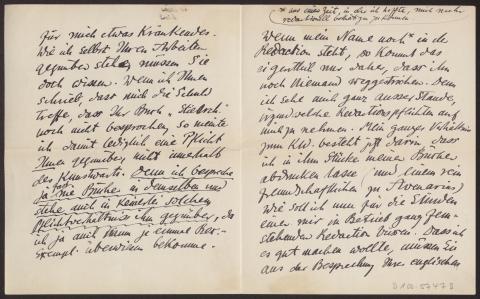 für mich etwas Kränkendes.
Wie ich selbst Ihren Arbeiten
gegenüber stehe, müssen Sie
doch wissen. Wenn ich Ihnen
schrieb, dass mich die Schuld
treffe, dass Ihr Buch „Stielbrch."
noch nicht besprochen, so meinte
ich damit lediglich eine Pflicht
Ihnen gegenüber, nicht innerhalb
des Kunstwarts. Denn ich bespreche
ja fast nie Bücher in demselben und
stehe auch in keinerlei solchem
Pflichtverhältniss ihm gegenüber, da
ich ja auch kaum je einmal Rez-
exempl. überwiesen bekomme.
* aus einer Zeit, in der ich hoffte, mich mehr
redactionell bethätigen zu können
Wenn mein Name noch* in der
Redaction steht, so kommt das
eigentlich nur daher, dass ihn
noch Niemand weggestrichen. Denn
ich sehe mich ganz ausser Stande,
irgendwelche Redactionspflichten auf
mich zu nehmen. Mein ganzes Verhältniss
zum KW. besteht jetzt darin, dass
ich in ihm Stücke meiner Bücher
abdrucken lasse (und einem rein
freundschaftlichen zu Avenarius)
Wie soll ich nun für die Sünden
einer mir im Betrieb ganz fern-
stehenden Redaction büssen. Dass ich
es gut machen wollte, müssen Sie
aus der Besprechung Ihres englischen